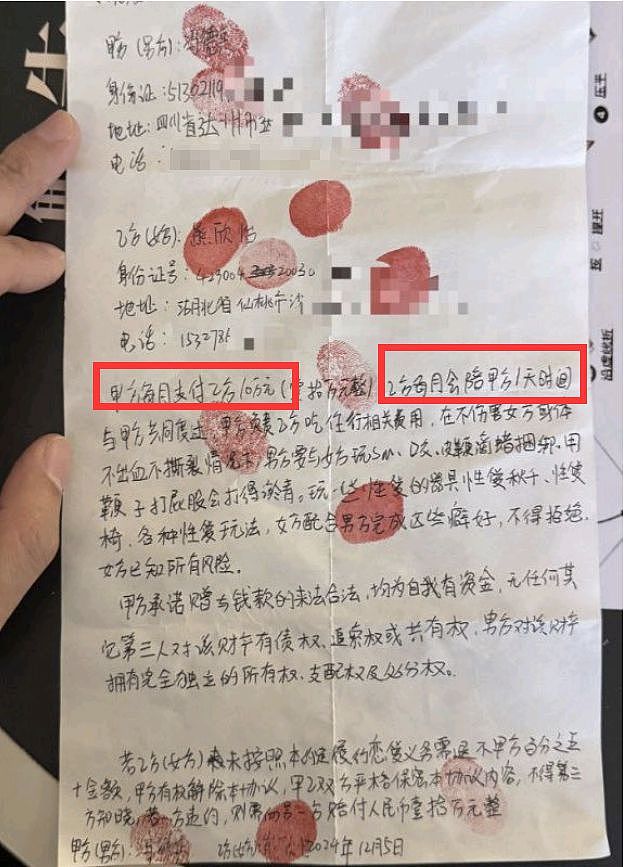 甲方(男方):冯德
身份证:51302119
地址:四川省达州市
电话:
乙方(女方):欣怡
身份证号:429004 20030
地址:湖北省仙桃市沙
电话:153278
甲方每月支付乙方10万元(壹拾万元整)乙方每月会陪甲方1天时间
与甲方共同度过,甲方负责乙方吃住行相关费用,在不伤害女方或体
不出血不撕裂情况下男方要与女方玩Sm、 皮鞭滴蜡捆绑.用
鞭子打屁股会打得淤青。玩一些性爱的器具性爱秋千、性爱
椅、各种性爱玩法,女方配合男方完成这些癖好,不得拒绝.
女方已知所有风险。
甲方承诺赠与钱款的来法合法,均为自我有资金,无任何其
它第三人对该财产有债权、追索权或共有权,男方对该财产
拥有完全独立的所有权、支配权及处分权。
若乙方(女方)未按照本约定履行恋爱义务需退 甲方百分之五
十金额,甲方有权解除本协议,甲乙双方严格保密本协议内容,不得第三
方知晓,若一方违约,则 另一方赔付人民币壹拾万元整
甲方(男方): 乙方(女方) 2024年12月5日